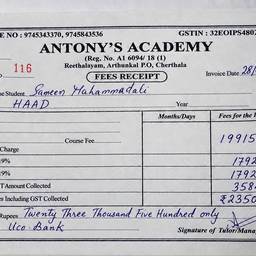 NE NO : 9745343370, 9745843536 GSTIN : 32EOIPS4802
ANTONY'S ACADEMY
(Reg. No. A1 6094/ 18 (1)
Reethalayam, Arthunkal P.O, Cherthala
116 FEES RECEIPT Invoice Date 28/
he Student Sameen Muhammadali
HAAD Year
Months/Days Fees for the
Course Fee 19915
Charge
9% 1792
9% 1792
T Amount Collected 3584
es Including GST Collected ₹2350
Rupees Twenty Three Thousand Five Hundred only
Uco-Bank Signature of Tutor/Mana